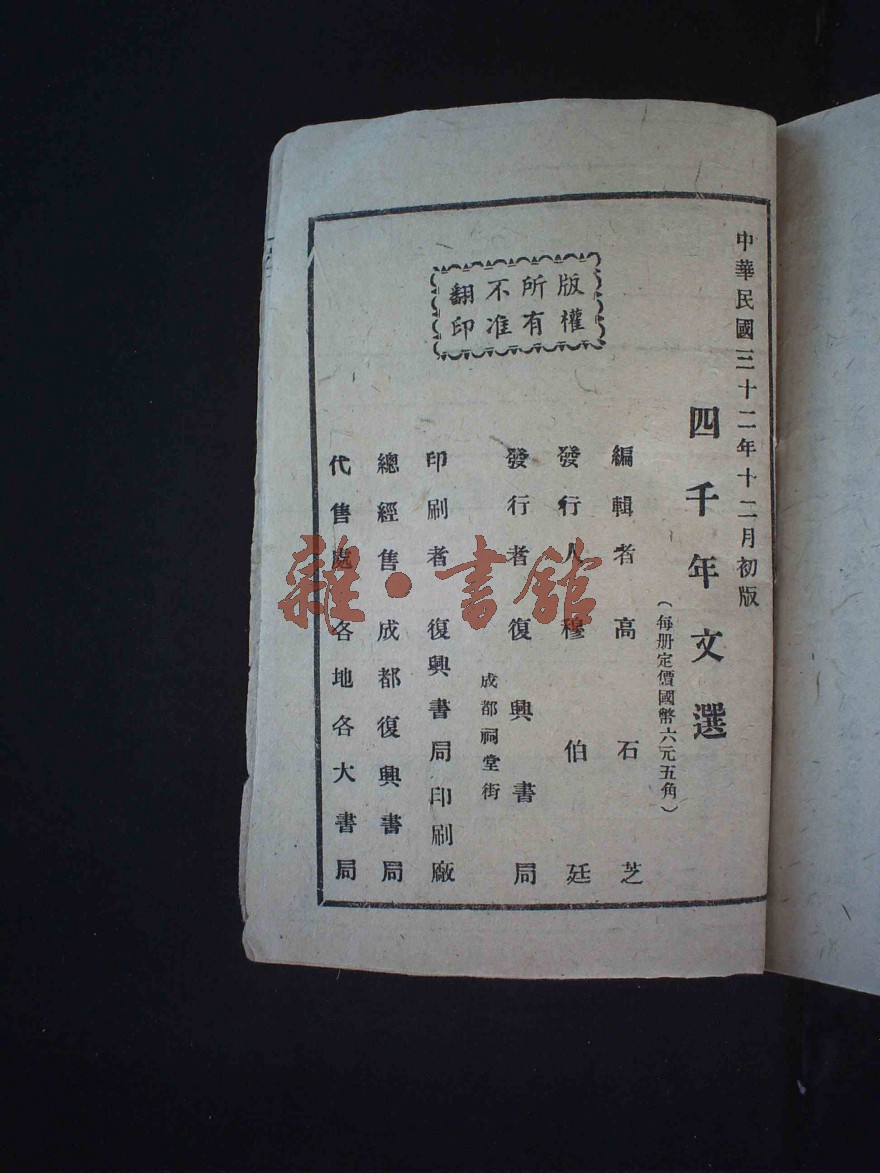 中華民國三十二年十二月初版
四千年文選
（每册定價國幣六元五角）
編輯者 高石芝
發行人 穆伯廷
發行者 復興書局
成都祠堂街
印刷者 復興書局印刷廠
總經售 成都復興書局
代售處 各地各大書局
版權
所有
不准
翻印
雜·書館